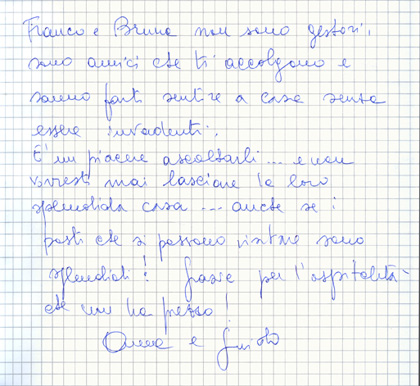 Franco e Bruna non sono gestori,
sono amici che ti accolgono e
sanno farti sentire a casa senza
essere invadenti.
E' un piacere ascoltarli... e non
vorresti mai lasciare la loro
splendida casa... anche se i
posti che si possono visitare sono
splendidi! Grazie per l'ospitalità
che non ha prezzo!
Anna e Guido